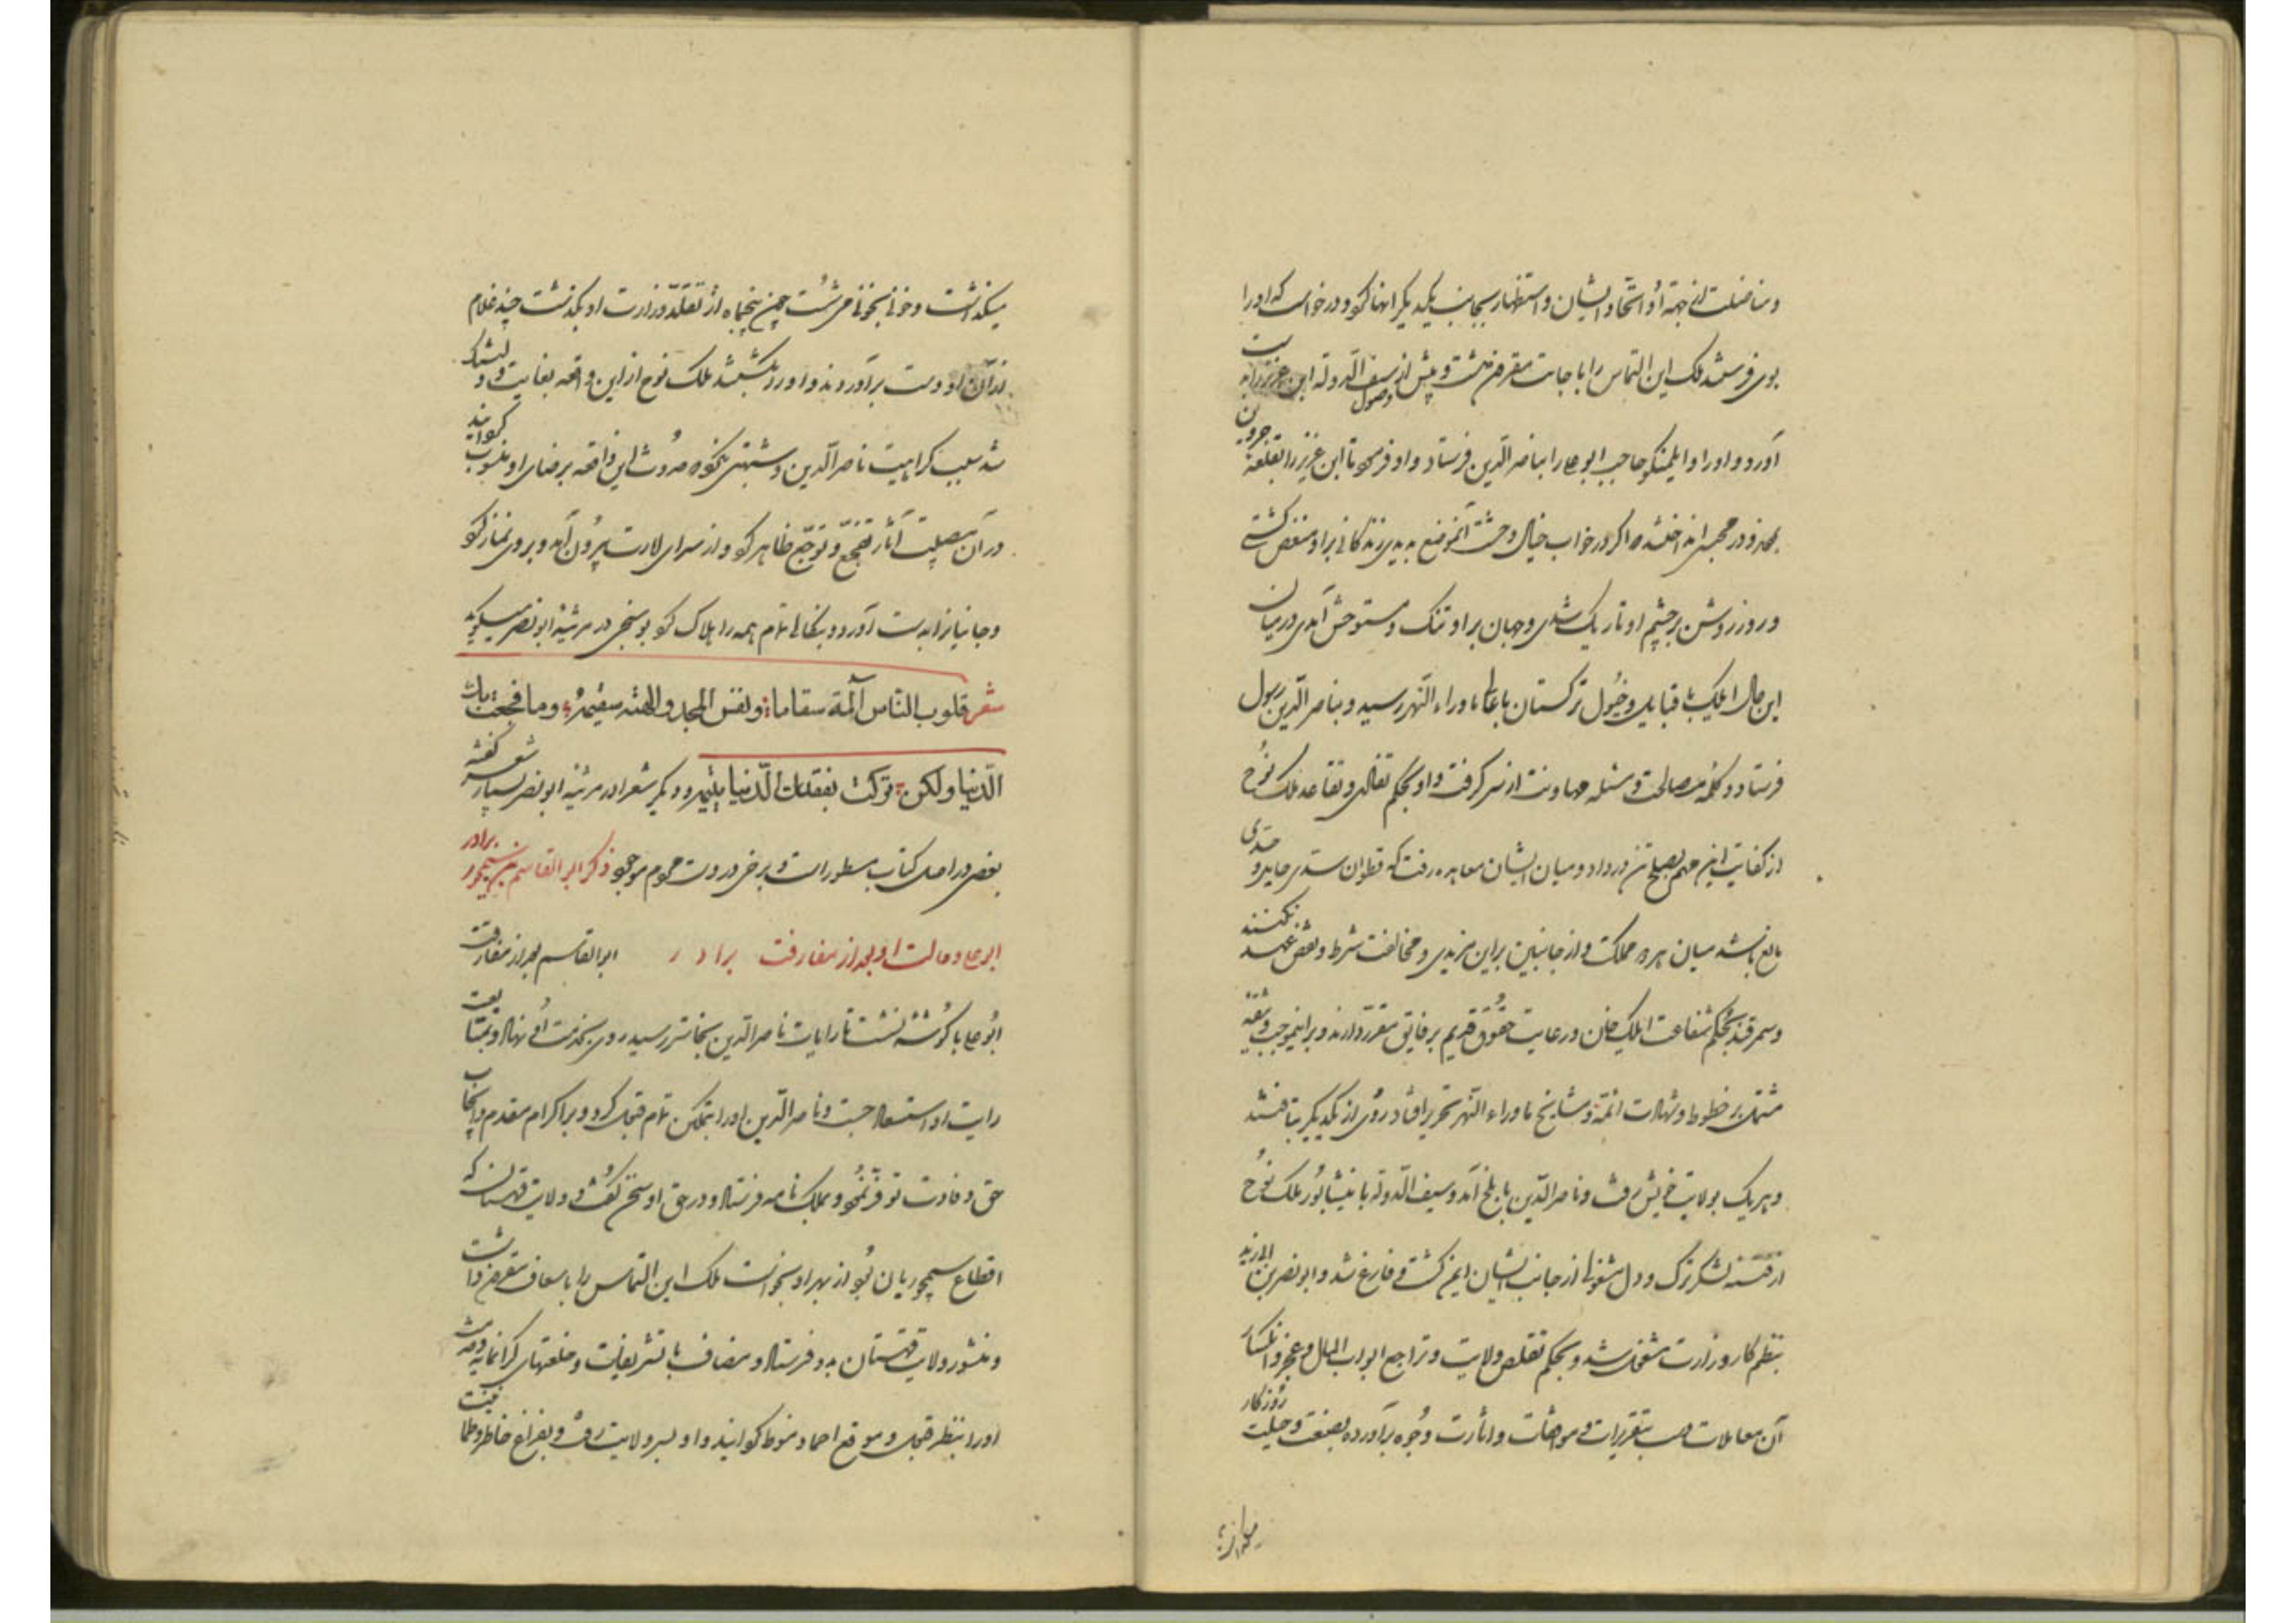 و مناضلت از جهة او و اتحاد ایشان و استظهار بجانب یکدیگر انها کرد و درخواست که او را
بوی فرستد ملک این التماس را باجابت مقرون داشت و پیش از وصول سیف الدوله ابن عزیر را بدست
آورد و او را و ایلمنکو حاجب ابو علی را بناصر الدین فرستاد و او فرمود تا ابن عزیر را بقلعه جردین
بردند و در محبسی انداختند که اگر در خواب خیال وحشت آن موضع بدیدی زندگانی بر او منغص گشتی
و روز روشن بر چشم او تاریک شدی و جهان بر او تنگ و مستوحش آمدی در میان
این حال ایلک با قبایل و خیول ترکستان باعالی ماوراء النهر رسید و بناصر الدین رسول
فرستاد و کلمه مصالحت و مسئله مهادنت از سر گرفت و او بحکم تقاعد ملک نوح
از کفایت این مهم بصلح تن در داد و میان ایشان معاهده رفت که قطوان سدی حاجز و حدی
مانع باشد میان هر دو مملکت و از جانبین بر این مزیدی و مخالفت شرط و نقض عهد نکنند
و سمرقند بحکم شفاعت ایلک خان و رعایت حقوق قدیم بر فایق مقرر دارند و بر اینموجب وثیقه
مشتمل بر خطوط و شهادت ائمه و مشایخ ماوراء النهر تحریر افتاد و روی از یکدیگر بتافتند
و هر یک بولایت خویش رفت و ناصر الدین با بلخ آمد و سیف الدوله با نیشابور و ملک نوح
از فتنه لشکر ترک و دل مشغولی از جانب ایشان ایمن گشت و فارغ شد و ابو نصر بن ابی زید
بنظم کار وزارت مشغول شد و بحکم تقلص ولایت و تراجع ابواب المال و عجز و انکسار
آن معاملات بتقریرات و مواضعات و اثارت وجوه برآورده بصنعت و حیلت روزگار
میگذاشت و خونی بخونی می شست چون پنجماه از تقلد وزارت او بگذشت چند غلام
از آن او دست برآوردند و او را بکشتند ملک نوح از این واقعه بغایت دلتنگ
شد بسبب کراهیت ناصر الدین و مشتبهی که نکوه حدوث این واقعه برضای او منسوب گردانند
در آن مصیبت آثار تفجع و توجع ظاهر کرد و از سرای امارت بیرون آمد و بر وی نماز کرد
و جانیانرا بدست آورد و بنکالی تمام همه را هلاک کرد بوسنجی در مرثیه ابو نصر میگوید
شعر قلوب الناس آلمة سقاما ونفس المجد والهة سقیمه وما فجعت بك
الدنیا ولکن ترکت بفقدك الدنیا یتیمه و دیگر شعرا در مرثیه ابو نصر بسیار شعر گفته
بعضی در اصل کتاب مسطور است و برخی در موجود ذکر ابو القاسم بن سیمجور برادر
ابو علی و حالت او بعد از مفارقت برادر ابو القاسم بعد از مفارقت
ابو علی با گوشه نشست تا رایات ناصر الدین بجانب رسید روی بخدمت او نهاد و بمتابعت
رایت او استسعاد جست و ناصر الدین او را بتمکین تمام قبول کرد و بر اکرام مقدم و ایجاب
حق وفادت توفر نمود و بملک نامه فرستاد و در حق او سخن گفت و ولایت قهستان که
اقطاع سیمجوریان بود از بهر او بخواست ملک این التماس را باسعاف مقرون داشت
و منشور ولایت قهستان بدو فرستاد و مضاف با تشریفات و خلعتهای گرانمایه و خدمت
او را بنظر قبول و موقع احماد منوط گردانید و او بسر ولایت رفت و بفراغ خاطر و طمانینت